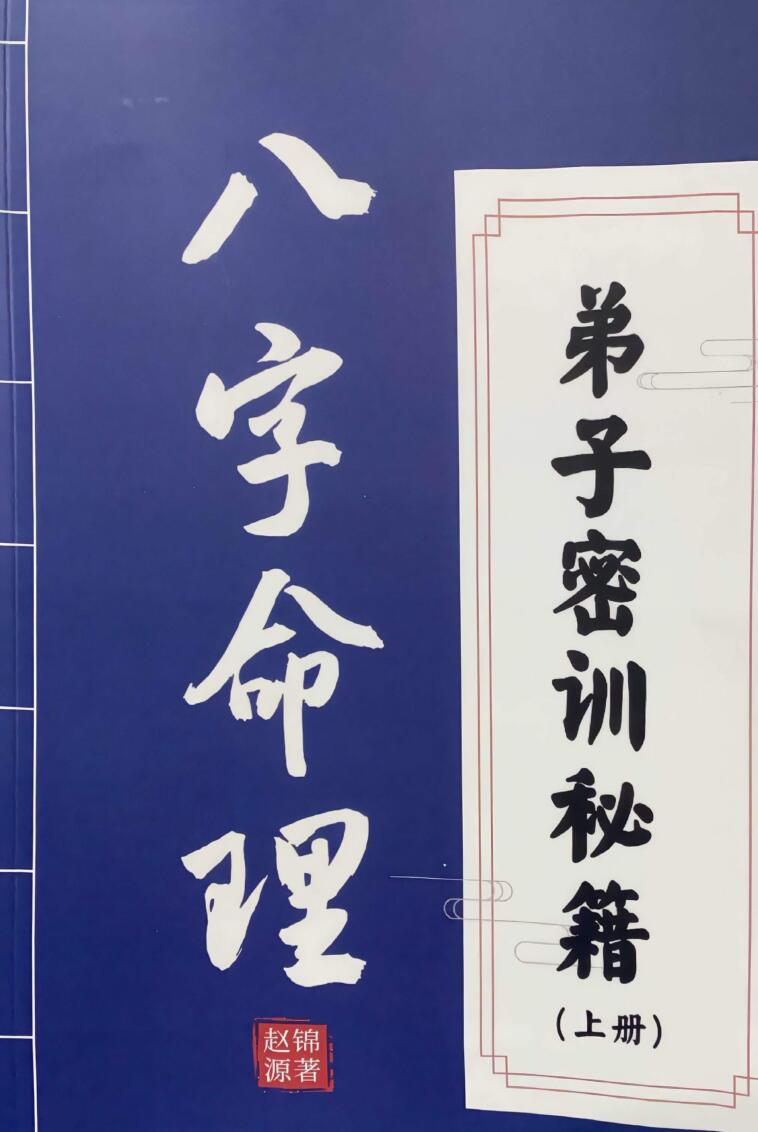 八字命理
弟子密训秘籍
(上册)
赵锦
源著